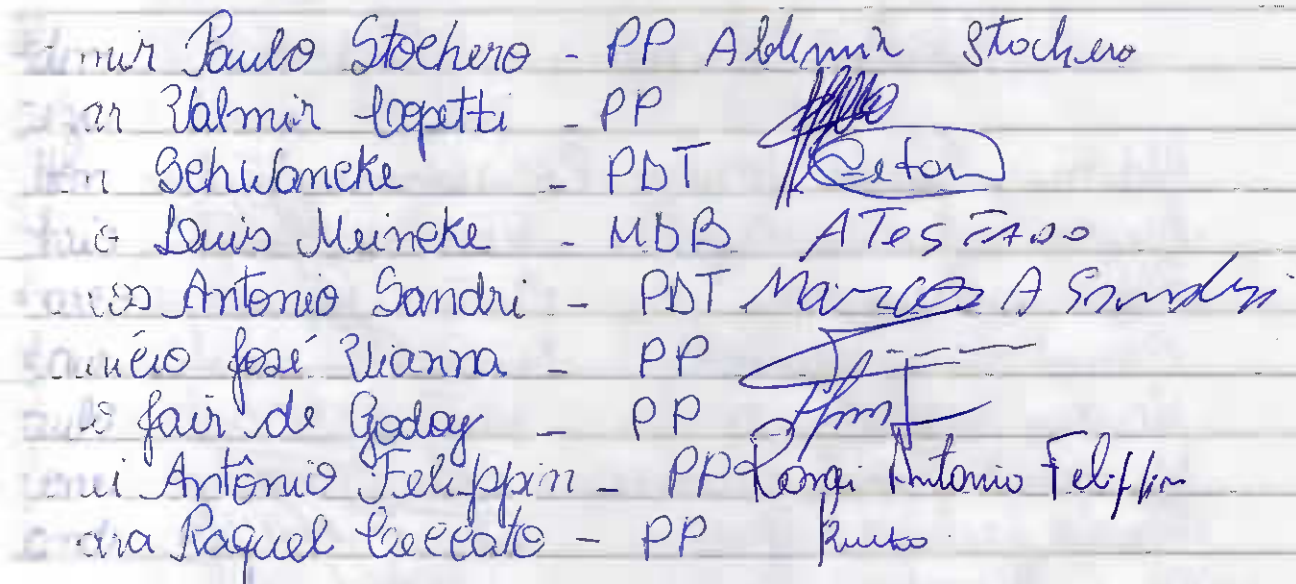 Paulo Stochero - PP Aldemir Stochero
Valmir Copetti - PP
Schwancke - PDT
Luis Meincke - MDB ATESTADO
Antonio Sandri - PDT Marcos A Sandri
José Vianna - PP
Jair de Godoy - PP
Antônio Felippin - PP Rongi Antonio Felippin
Raquel Ceccato - PP